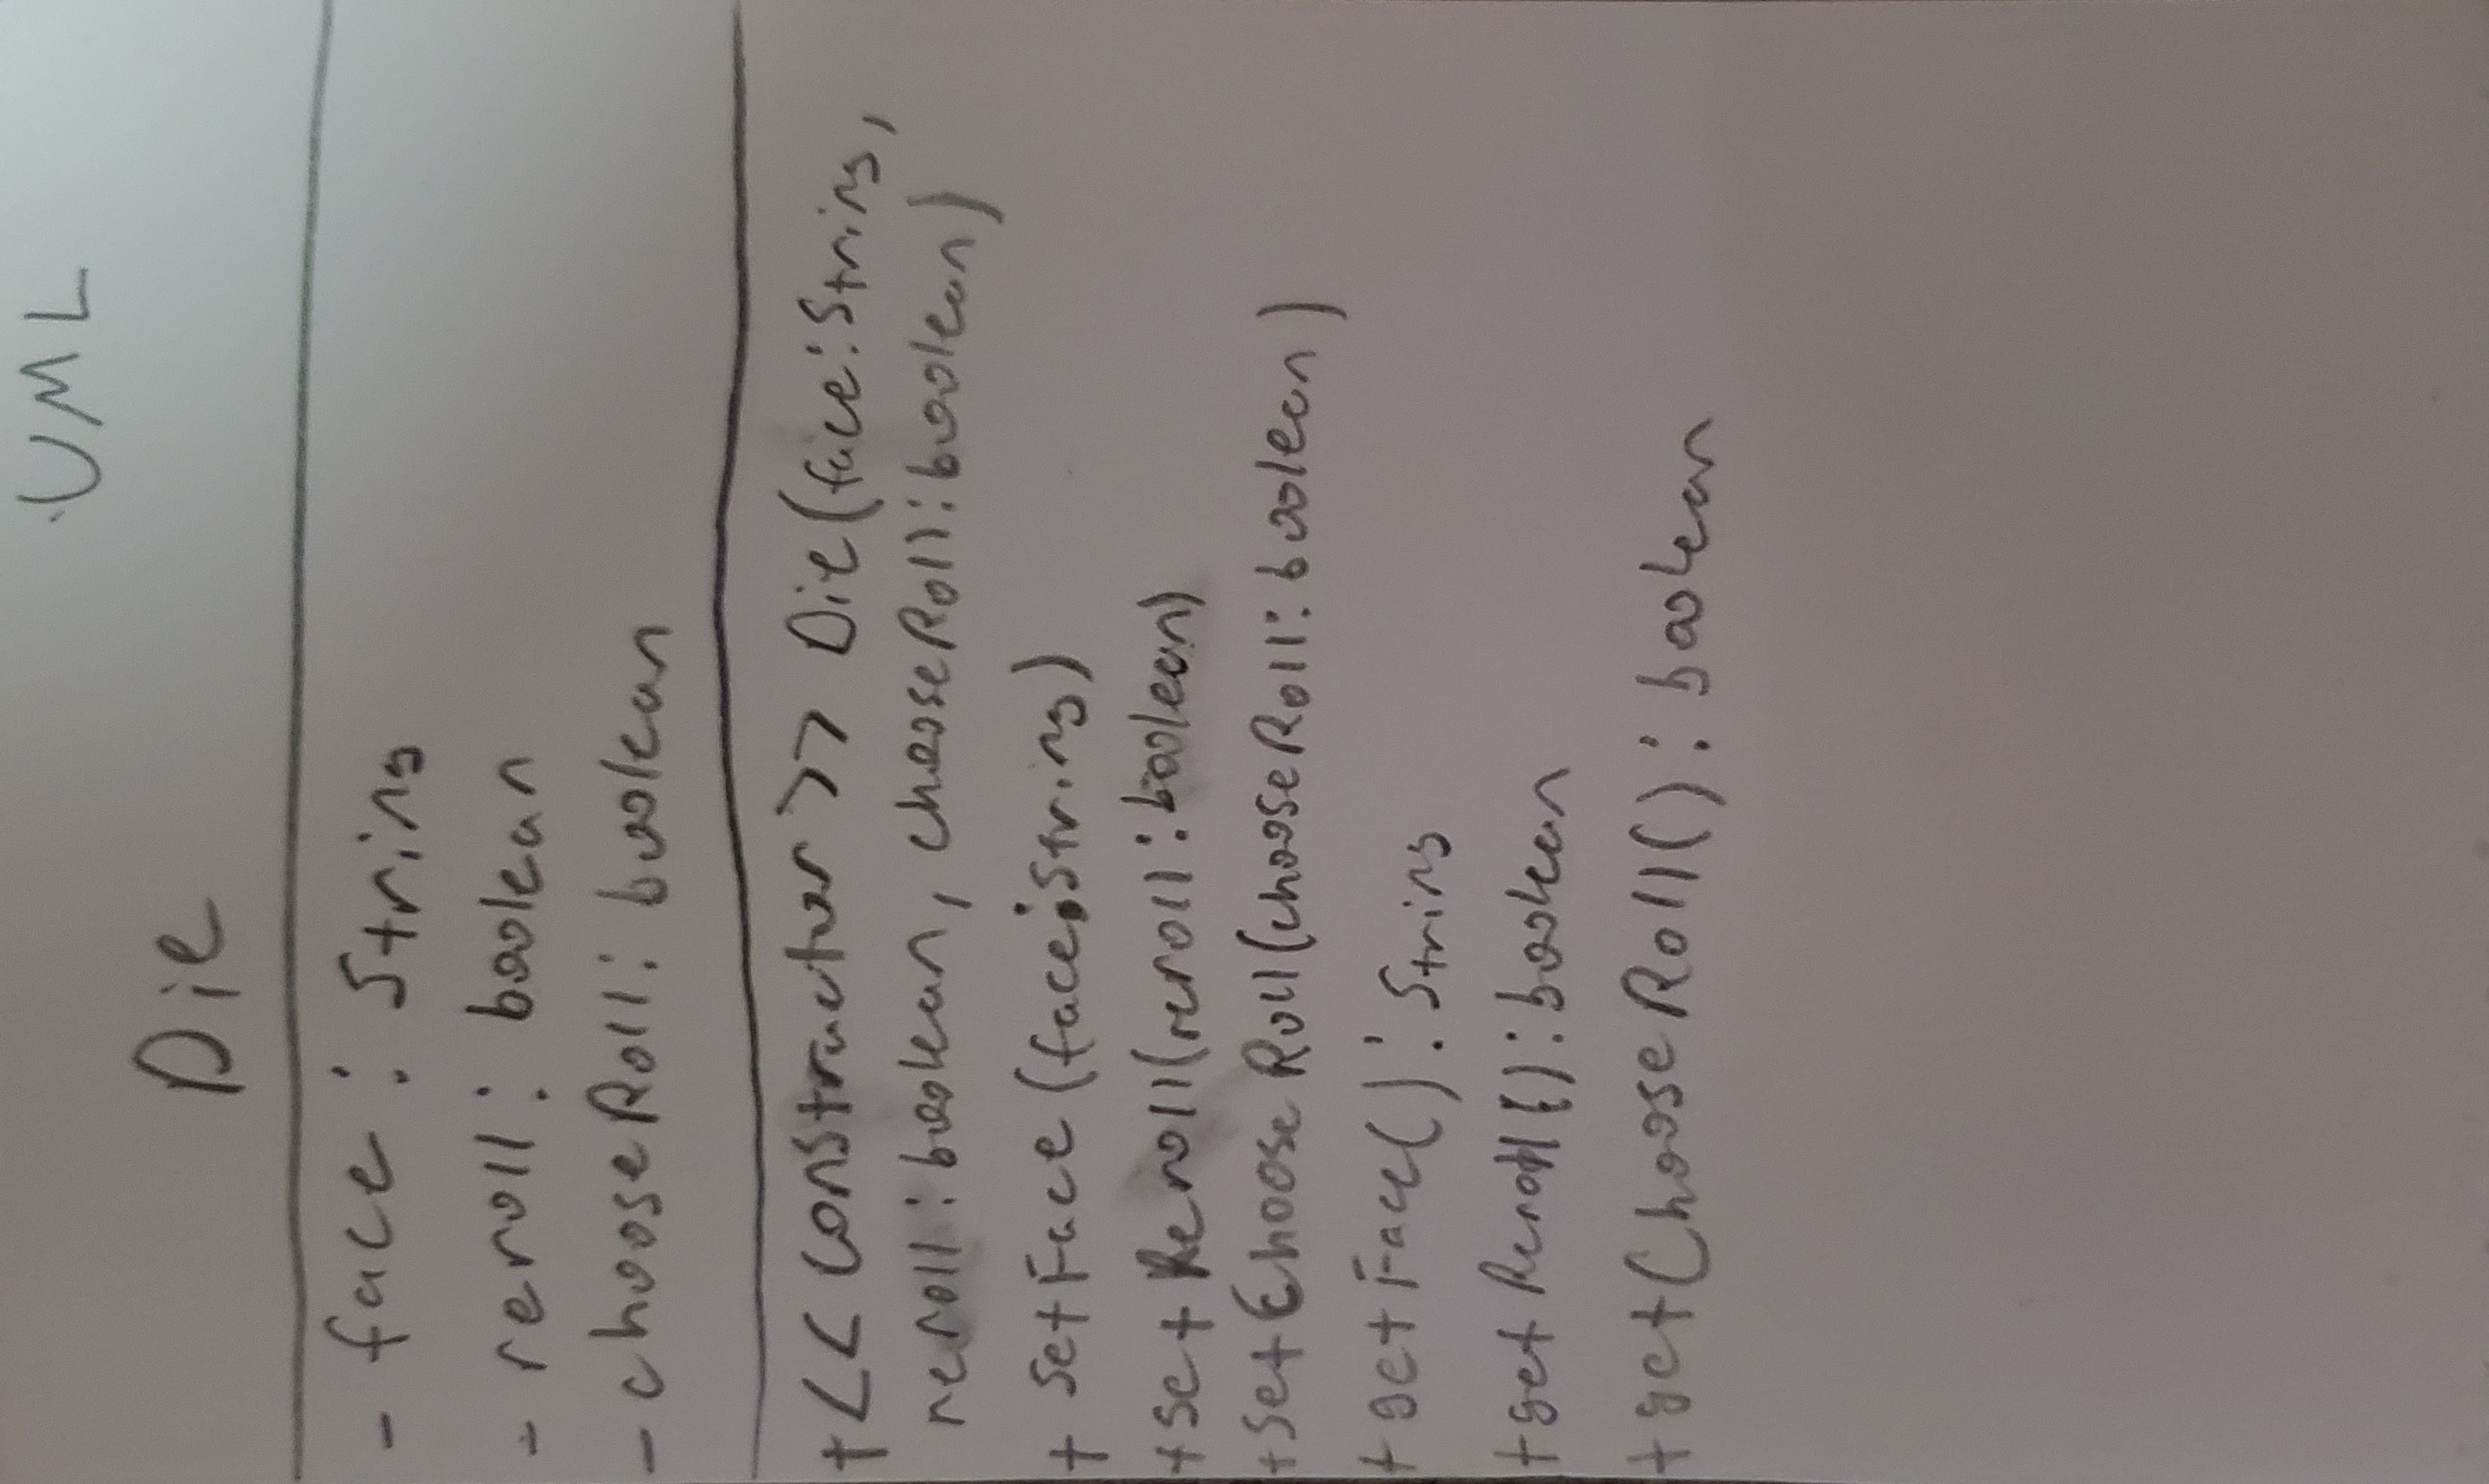 UML
Die
- face : String
- reroll : boolean
- chooseRoll : boolean
+<< constructor >> Die(face:String,
reroll : boolean, chooseRoll : boolean)
+ setFace (face:String)
+setReroll(reroll : boolean)
+setChooseRoll(chooseRoll : boolean)
+ getFace() : String
+getReroll() : boolean
+getChooseRoll() : boolean